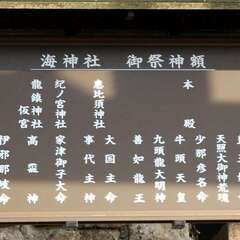 海神社 御祭神額
本殿
天照大御神荒魂
少那彦名命
牛頭天皇
九頭龍大明神
善如龍王
恵比須神社
大国主命
事代主神
紀ノ宮神社
家津御子大命
龍鎮神社
仮宮
高龗神
伊邪那岐命